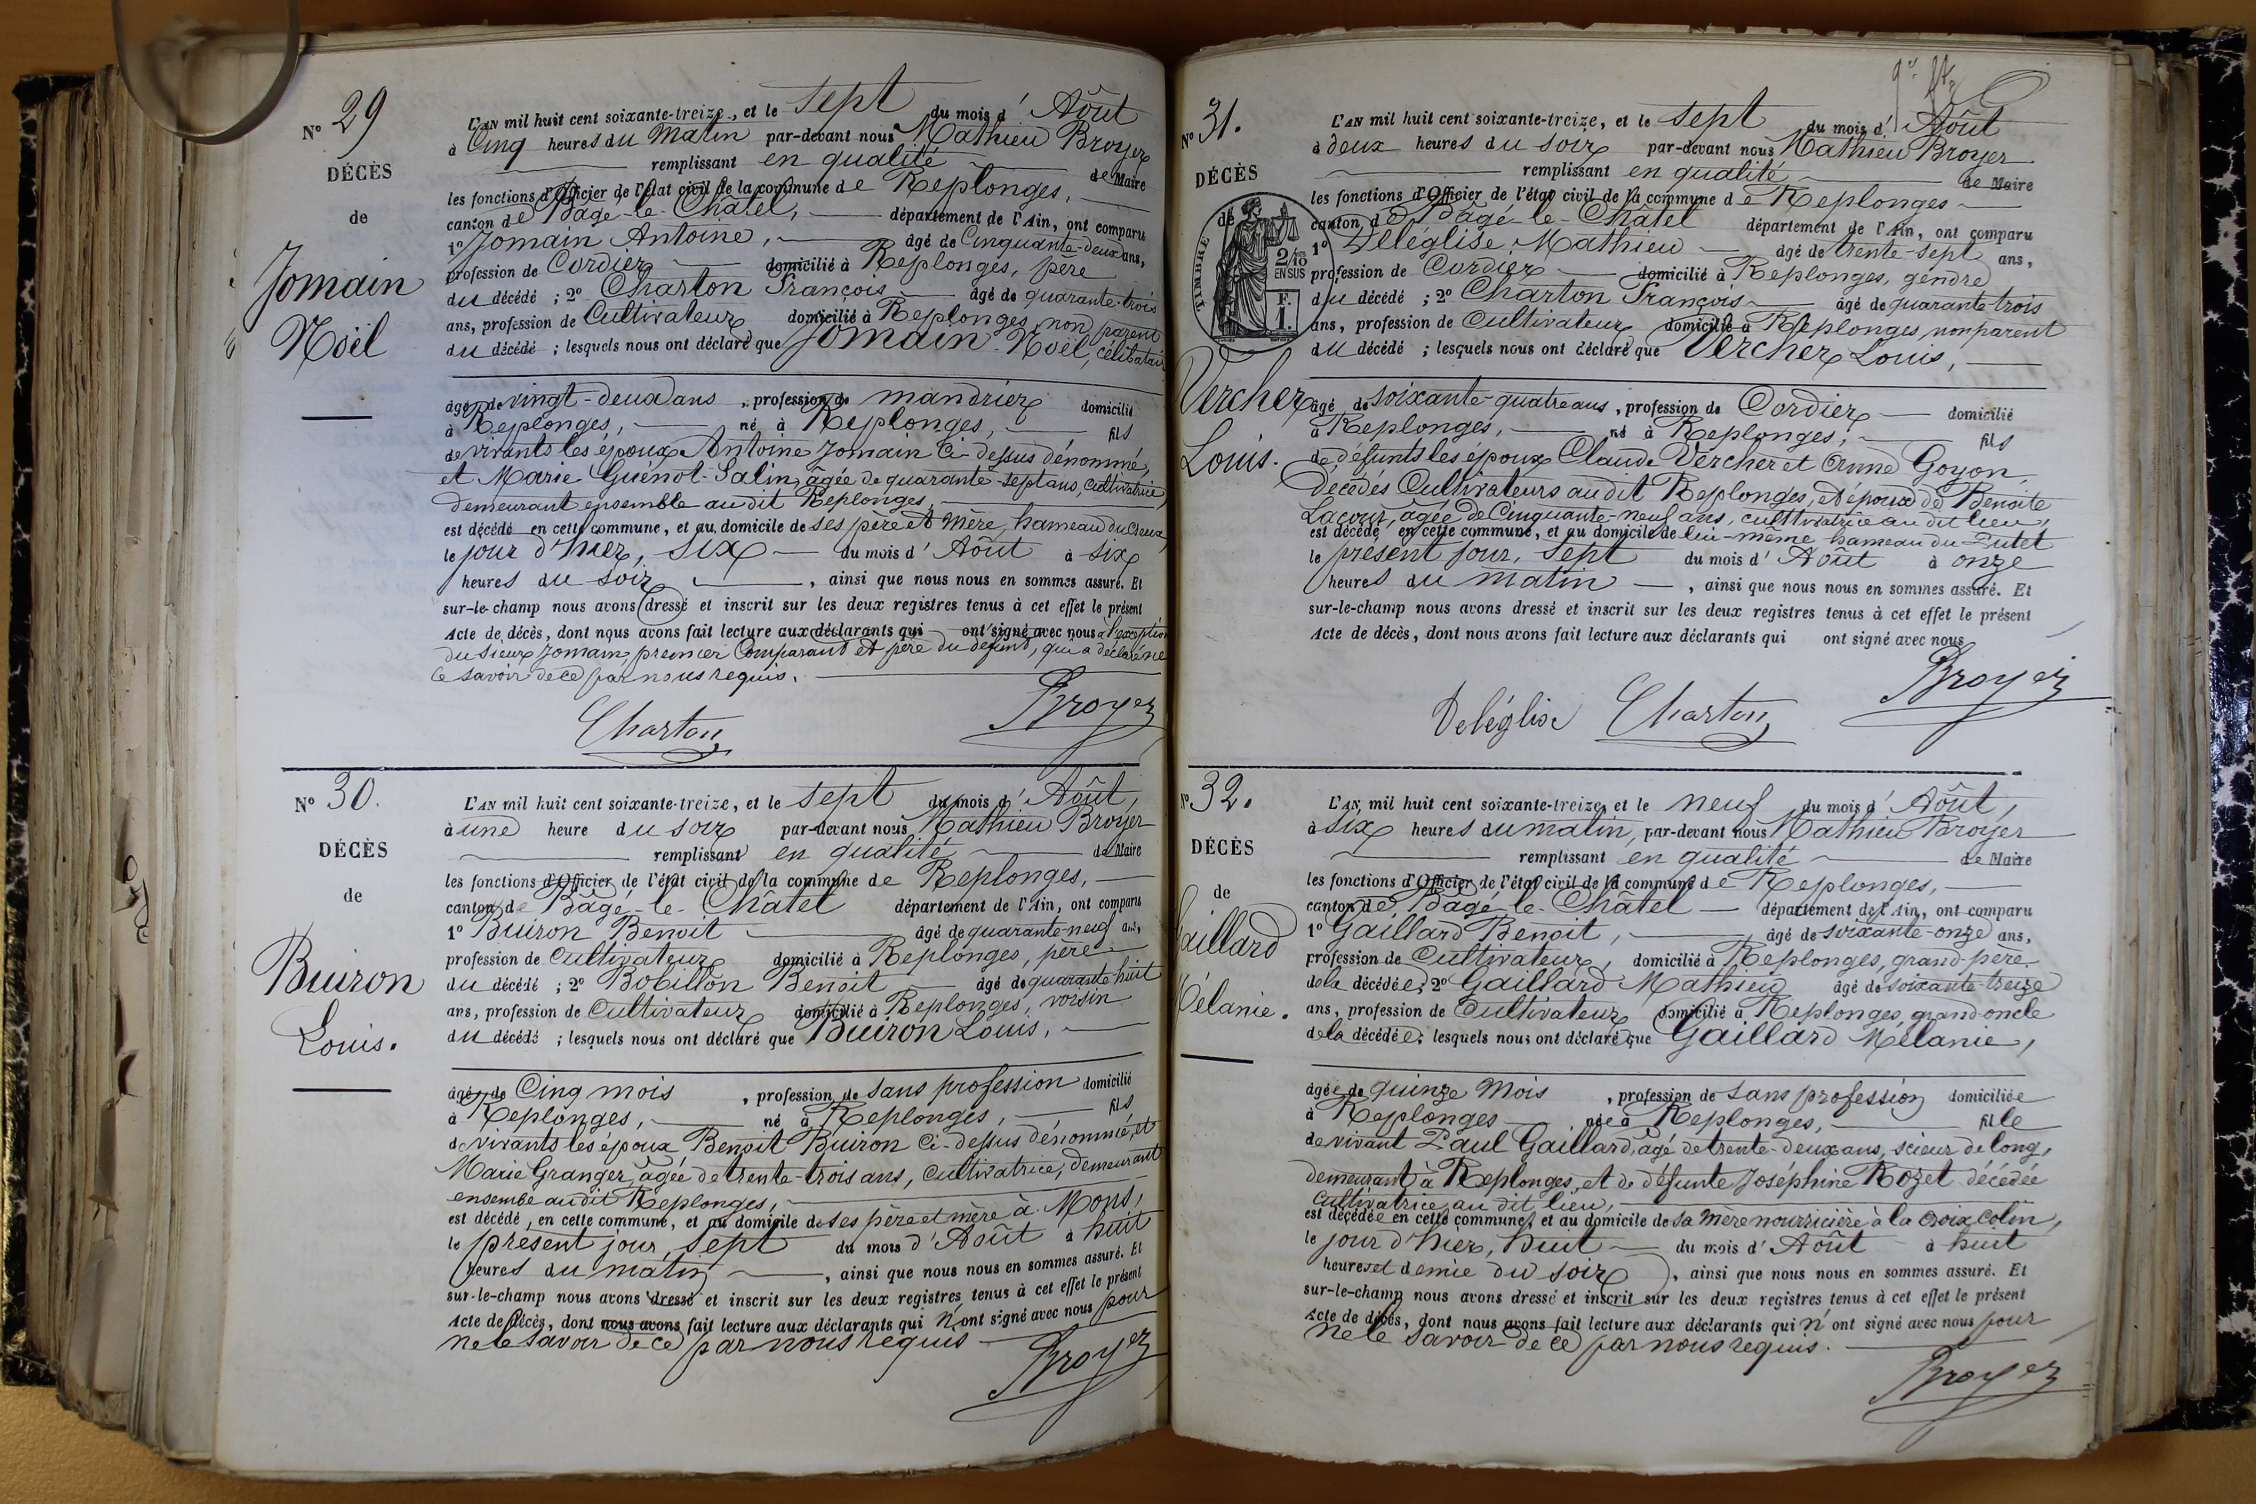 N° 29
DÉCÈS
de
Jomain
Noël
L'AN mil huit cent soixante-treize, et le sept du mois d'Août
à Cinq heures du matin par-devant nous Mathieu Broyer
remplissant en qualité de Maire
les fonctions d'Officier de l'état civil de la commune de Replonges,
canton de Bâgé-le-Châtel, département de l'Ain, ont comparu
1° Jomain Antoine, âgé de Cinquante-deux ans,
profession de Cordier domicilié à Replonges, père
du décédé ; 2° Charton François âgé de quarante-trois
ans, profession de Cultivateur domicilié à Replonges, non parent
du décédé ; lesquels nous ont déclaré que Jomain Noël, célibataire
âgé de vingt-deux ans, profession de mandrier domicilié
à Replonges, né à Replonges, fils
de vivants les époux Antoine Jomain Ci-dessus dénommé,
et Marie Guénot-Salin, âgée de quarante-sept ans, cultivatrice,
demeurant ensemble au dit Replonges,
est décédé en cette commune, et au domicile de ses père et mère, hameau du
le jour d'hier, six du mois d'Août à six
heures du soir, ainsi que nous nous en sommes assuré. Et
sur-le-champ nous avons dressé et inscrit sur les deux registres tenus à cet effet le présent
Acte de décès, dont nous avons fait lecture aux déclarants qui ont signé avec nous à l'exception
du sieur Jomain, premier Comparant et père du défunt, qui a déclaré ne
le savoir de ce par nous requis.
Charton Broyer
N° 30.
DÉCÈS
de
Buiron
Louis.
L'AN mil huit cent soixante-treize, et le sept du mois d'Août,
à une heure du soir par-devant nous Mathieu Broyer
remplissant en qualité de Maire
les fonctions d'Officier de l'état civil de la commune de Replonges,
canton de Bâgé-le-Châtel département de l'Ain, ont comparu
1° Buiron Benoit âgé de quarante-neuf ans,
profession de Cultivateur domicilié à Replonges, père
du décédé ; 2° Bobillon Benoit âgé de quarante-huit
ans, profession de Cultivateur domicilié à Replonges, voisin
du décédé ; lesquels nous ont déclaré que Buiron Louis,
âgé de Cinq mois, profession de sans profession domicilié
à Replonges, né à Replonges, fils
de vivants les époux Benoit Buiron Ci-dessus dénommé, et
Marie Granger, âgée de trente-trois ans, cultivatrice, demeurant
ensemble au dit Replonges,
est décédé, en cette commune, et au domicile de ses père et mère à Mons,
le présent jour, sept du mois d'Août à huit
heures du matin, ainsi que nous nous en sommes assuré. Et
sur-le-champ nous avons dressé et inscrit sur les deux registres tenus à cet effet le présent
Acte de décès, dont nous avons fait lecture aux déclarants qui n'ont signé avec nous pour
ne le savoir de ce par nous requis
Broyer
N° 31.
DÉCÈS
de
TIMBRE
2/10
EN SUS
F.
1.
Vercher
Louis.
L'AN mil huit cent soixante-treize, et le sept du mois d'Août
à deux heures du soir par-devant nous Mathieu Broyer
remplissant en qualité de Maire
les fonctions d'Officier de l'état civil de la commune de Replonges
canton de Bâgé-le-Châtel département de l'Ain, ont comparu
1° Deléglise Mathieu âgé de trente-sept ans,
profession de Cordier domicilié à Replonges, gendre
du décédé ; 2° Charton François âgé de quarante trois
ans, profession de Cultivateur domicilié à Replonges non parent
du décédé ; lesquels nous ont déclaré que Vercher Louis,
âgé de soixante-quatre ans, profession de Cordier domicilié
à Replonges, né à Replonges, fils
de défunts les époux Claude Vercher et Anne Goyon,
décédés Cultivateurs au dit Replonges, et époux de Benoite
Lacour, âgée de Cinquante-neuf ans, cultivatrice au dit lieu,
est décédé en cette commune, et au domicile de lui-même hameau du Putet
le présent jour, sept du mois d'Août à onze
heures du matin, ainsi que nous nous en sommes assuré. Et
sur-le-champ nous avons dressé et inscrit sur les deux registres tenus à cet effet le présent
Acte de décès, dont nous avons fait lecture aux déclarants qui ont signé avec nous
Deléglise Charton Broyer
N° 32.
DÉCÈS
de
Gaillard
Mélanie.
L'AN mil huit cent soixante-treize, et le neuf du mois d'Août,
à six heures du matin, par-devant nous Mathieu Broyer
remplissant en qualité de Maire
les fonctions d'Officier de l'état civil de la commune de Replonges,
canton de Bâgé-le-Châtel département de l'Ain, ont comparu
1° Gaillard Benoit, âgé de soixante-onze ans,
profession de Cultivateur, domicilié à Replonges, grand-père
de la décédée ; 2° Gaillard Mathieu âgé de soixante-treize
ans, profession de Cultivateur domicilié à Replonges, grand-oncle
de la décédée ; lesquels nous ont déclaré que Gaillard Mélanie,
âgée de quinze mois, profession de sans profession domiciliée
à Replonges née à Replonges, fille
de vivant Paul Gaillard, âgé de trente-deux ans, scieur de long,
demeurant à Replonges, et de défunte Joséphine Rozet décédée
cultivatrice au dit lieu,
est décédée en cette commune, et au domicile de sa mère nourricière à la Croix Colin,
le jour d'hier, huit du mois d'Août à huit
heures et demie du soir, ainsi que nous nous en sommes assuré. Et
sur-le-champ nous avons dressé et inscrit sur les deux registres tenus à cet effet le présent
Acte de décès, dont nous avons fait lecture aux déclarants qui n'ont signé avec nous pour
ne le savoir de ce par nous requis.
Broyer